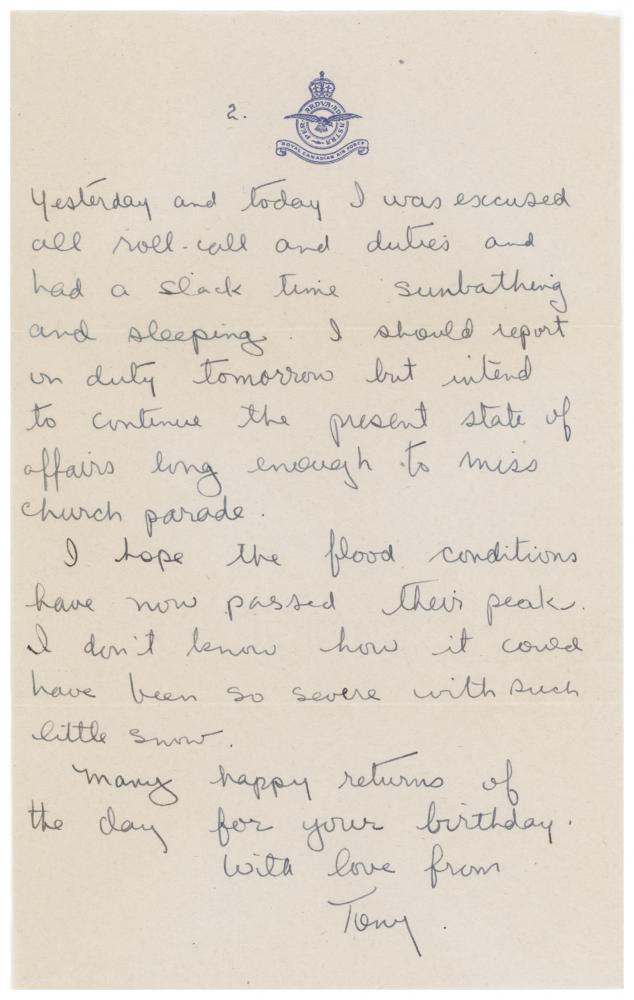 2.
PER ARDVA AD ASTRA
ROYAL CANADIAN AIR FORCE
Yesterday and today I was excused
all roll-call and duties and
had a slack time sunbathing
and sleeping. I should report
on duty tomorrow but intend
to continue the present state of
affairs long enough to miss
church parade.
I hope the flood conditions
have now passed their peak.
I don't know how it could
have been so severe with such
little snow.
Many happy returns of
the day for your birthday.
With love from
Tony.